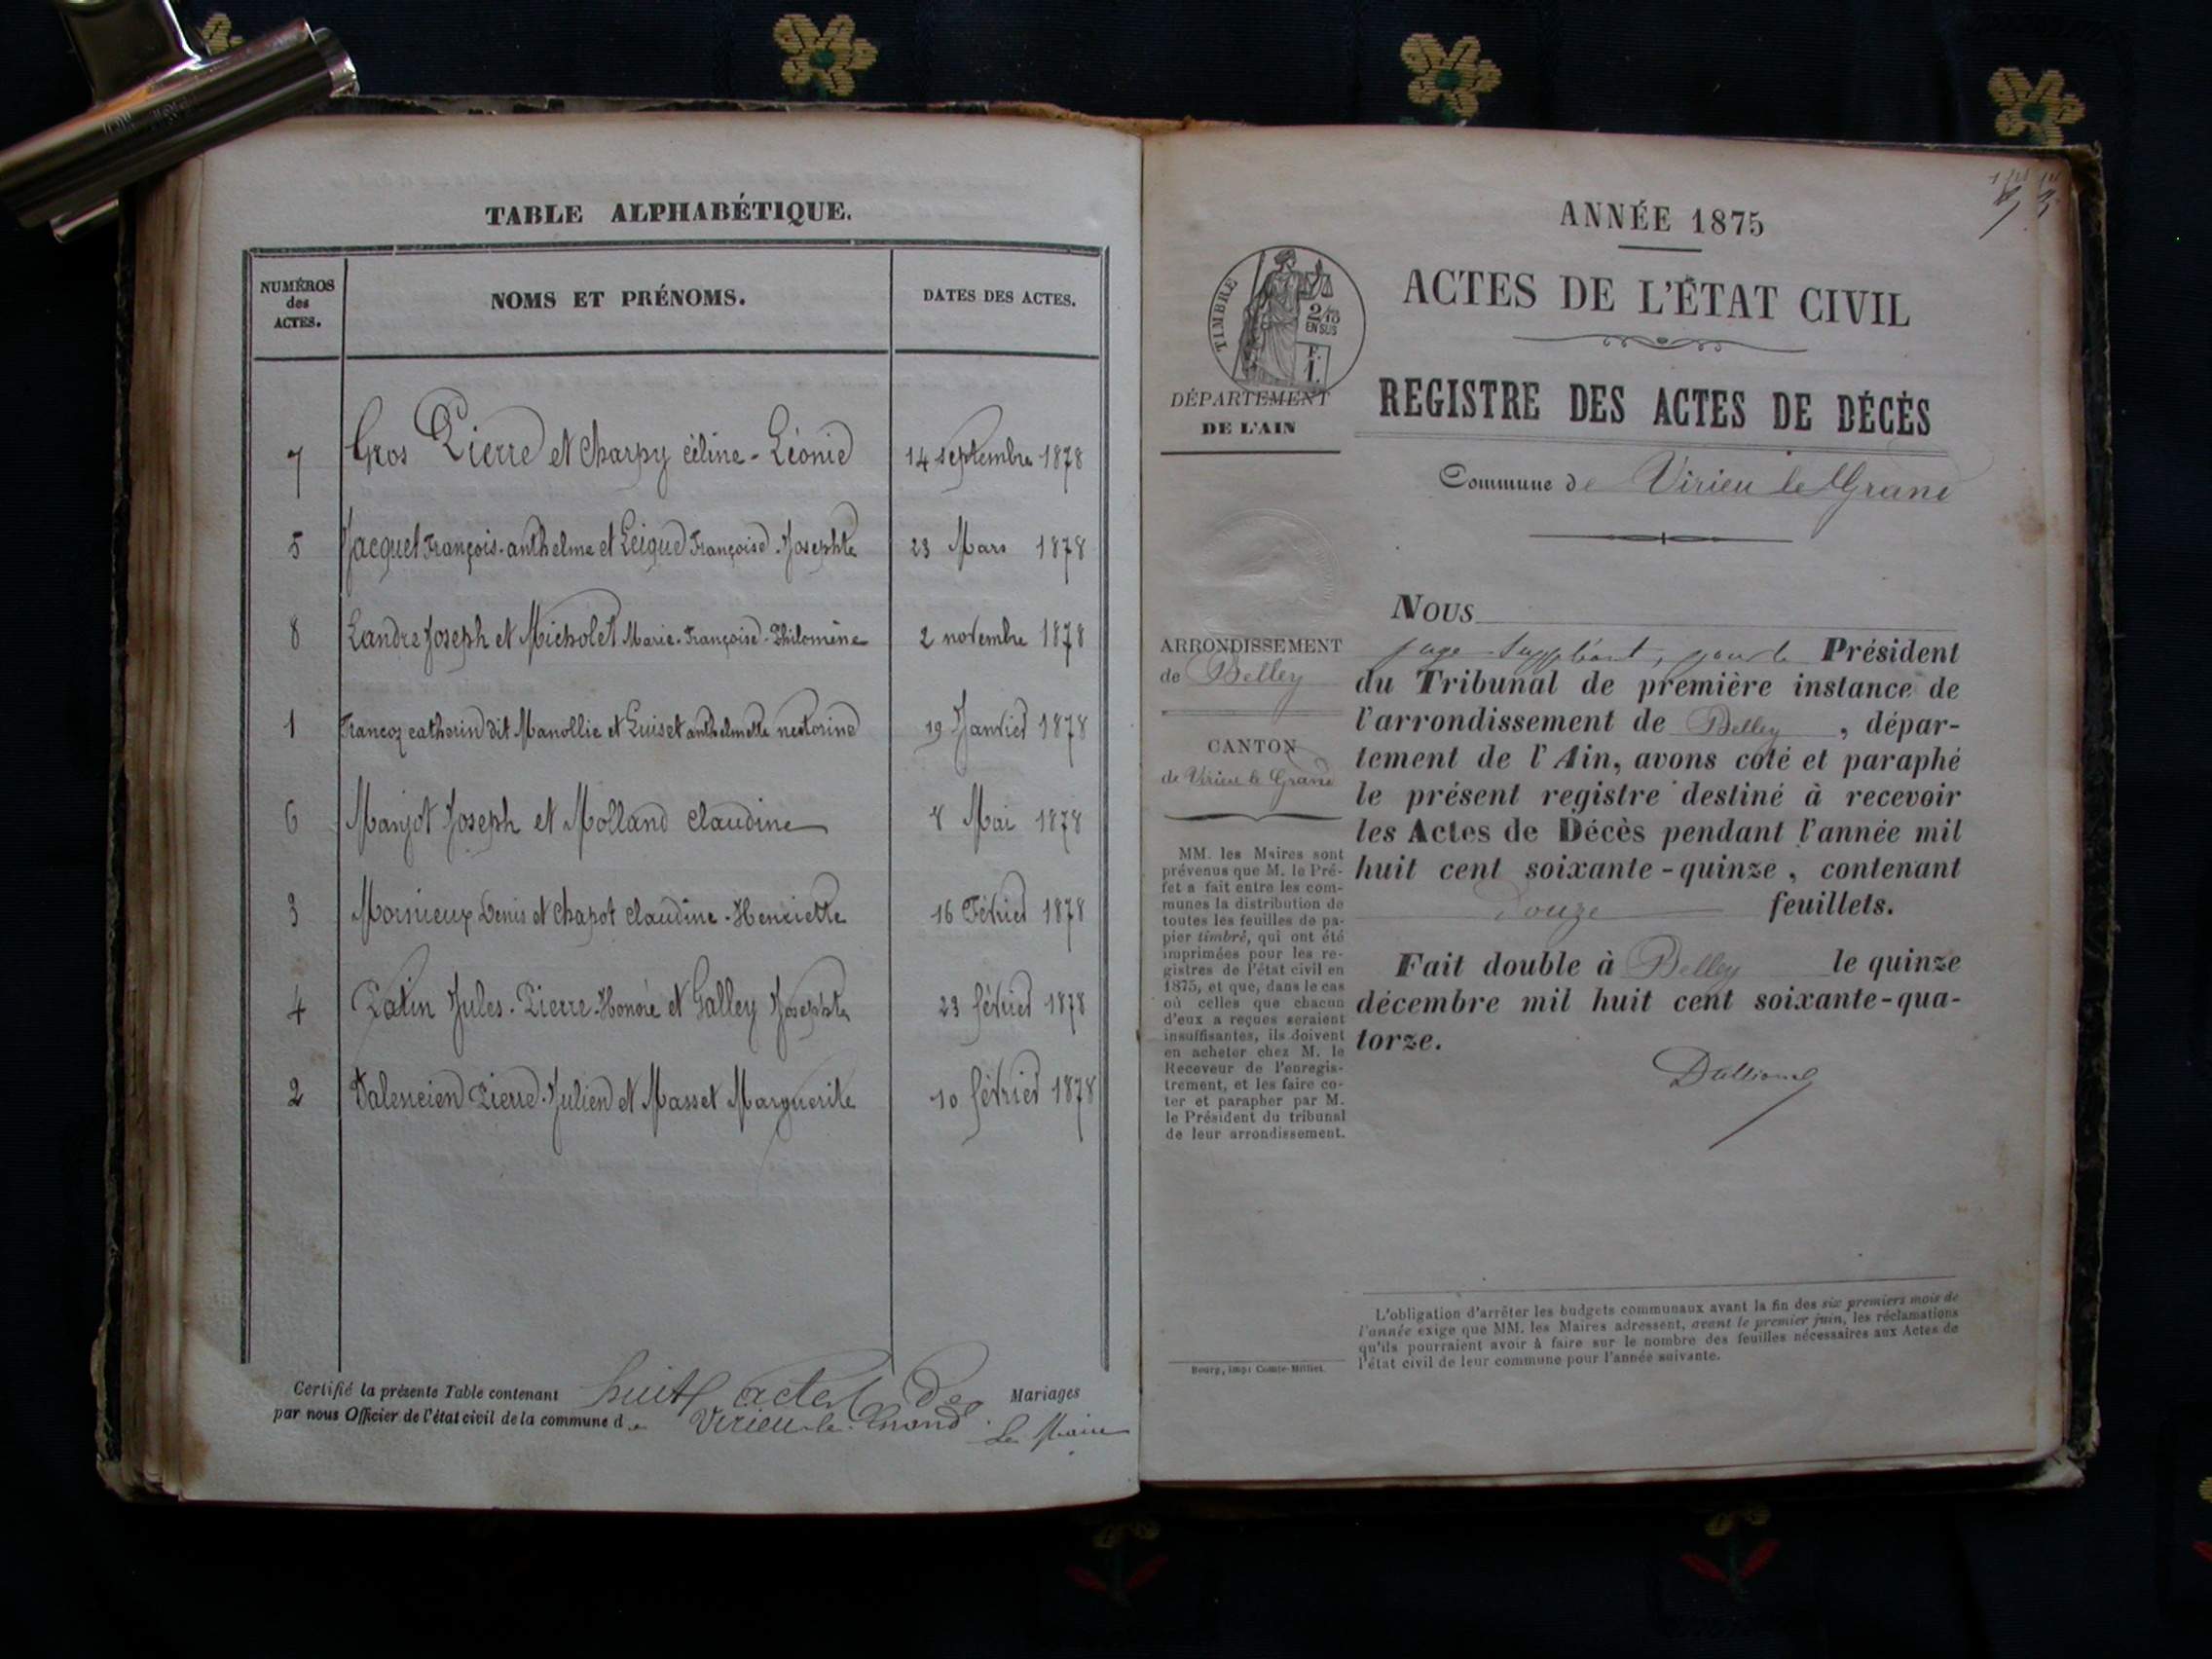 TABLE ALPHABÉTIQUE.
NUMÉROS
des
ACTES.
NOMS ET PRÉNOMS.
DATES DES ACTES.
7 Gros Pierre et Charpy Céline-Léonie 14 septembre 1878
5 Jacquet François-anthelme et Françoise-Josephte 23 Mars 1878
8 Landre Joseph et Micholet Marie-Françoise-Philomène 2 novembre 1878
1 Francoz catherin dit Manollie et Guiset anthelmette nestorine 19 Janvier 1878
6 Manjot Joseph et Molland Claudine 8 Mai 1878
3 Denis et Chapot claudine-Henriette 16 Février 1878
4 Patin Jules-Pierre-Honoré et Galley Josephte 23 février 1878
2 Valencien Pierre-Julien et Masset Marguerite 10 février 1878
Certifié la présente Table contenant huit actes de Mariages
par nous Officier de l'état civil de la commune de Virieu-le-Grand. Le Maire
ANNÉE 1875
ACTES DE L'ÉTAT CIVIL
REGISTRE DES ACTES DE DÉCÈS
Commune de Virieu le Grand
TIMBRE
2/10
EN SUS
F.
1.
DÉPARTEMENT
DE L'AIN
ARRONDISSEMENT
de Belley
CANTON
de Virieu le Grand
MM. les Maires sont
prévenus que M. le Pré-
fet a fait entre les com-
munes la distribution de
toutes les feuilles de pa-
pier timbré, qui ont été
imprimées pour les re-
gistres de l'état civil en
1875, et que, dans le cas
où celles que chacun
d'eux a reçues seraient
insuffisantes, ils doivent
en acheter chez M. le
Receveur de l'enregis-
trement, et les faire co-
ter et parapher par M.
le Président du tribunal
de leur arrondissement.
Bourg, imp: Comte-Milliet.
NOUS
juge suppléant, pour le Président
du Tribunal de première instance de
l'arrondissement de Belley, dépar-
tement de l'Ain, avons coté et paraphé
le présent registre destiné à recevoir
les Actes de Décès pendant l'année mil
huit cent soixante-quinze, contenant
Douze feuillets.
Fait double à Belley le quinze
décembre mil huit cent soixante-qua-
torze.
L'obligation d'arrêter les budgets communaux avant la fin des six premiers mois de
l'année exige que MM. les Maires adressent, avant le premier juin, les réclamations
qu'ils pourraient avoir à faire sur le nombre des feuilles nécessaires aux Actes de
l'état civil de leur commune pour l'année suivante.